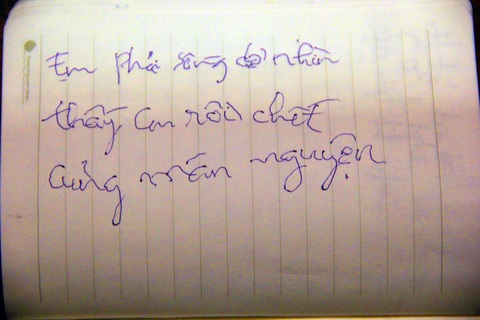 Em phải sống để nhìn
thấy con rồi chết
cũng mãn nguyện